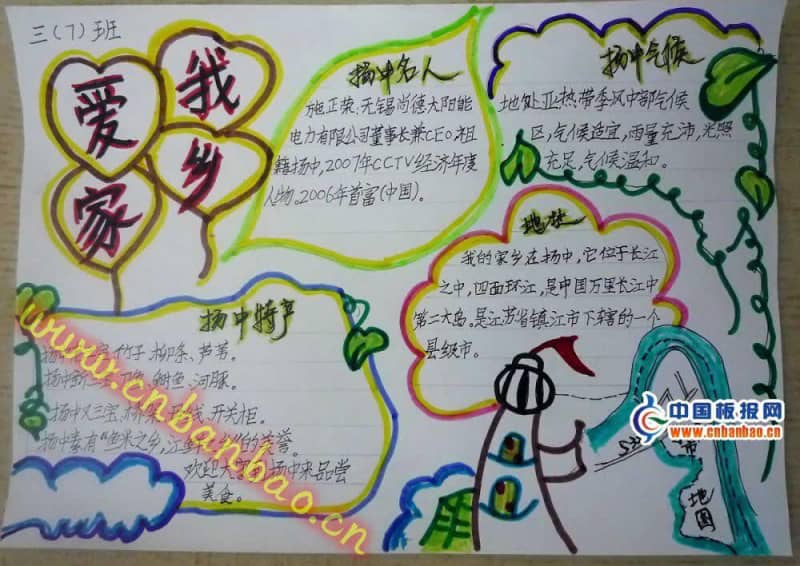 三（7）班
我爱家乡
扬中名人
施正荣：无锡尚德太阳能
电力有限公司董事长兼CEO祖
籍扬中，2007年CCTV经济年度
人物。2006年首富（中国）。
扬中气候
地处亚热带季风中部气候
区，气候适宜，雨量充沛，光照
充足，气候温和。
地址
我的家乡在扬中，它位于长江
之中，四面环江，是中国万里长江中
第二大岛。是江苏省镇江市下辖的一个
县级市。
扬中特产
竹子、柳条、芦苇。
鮰鱼、河豚。
扬中又三宝，
开关柜。
扬中素有“鱼米之乡，江鲜
的美誉。
欢迎大
扬中来品尝
美食。
市
地图
www.cnbanbao.cn
中国板报网
www.cnbanbao.cn